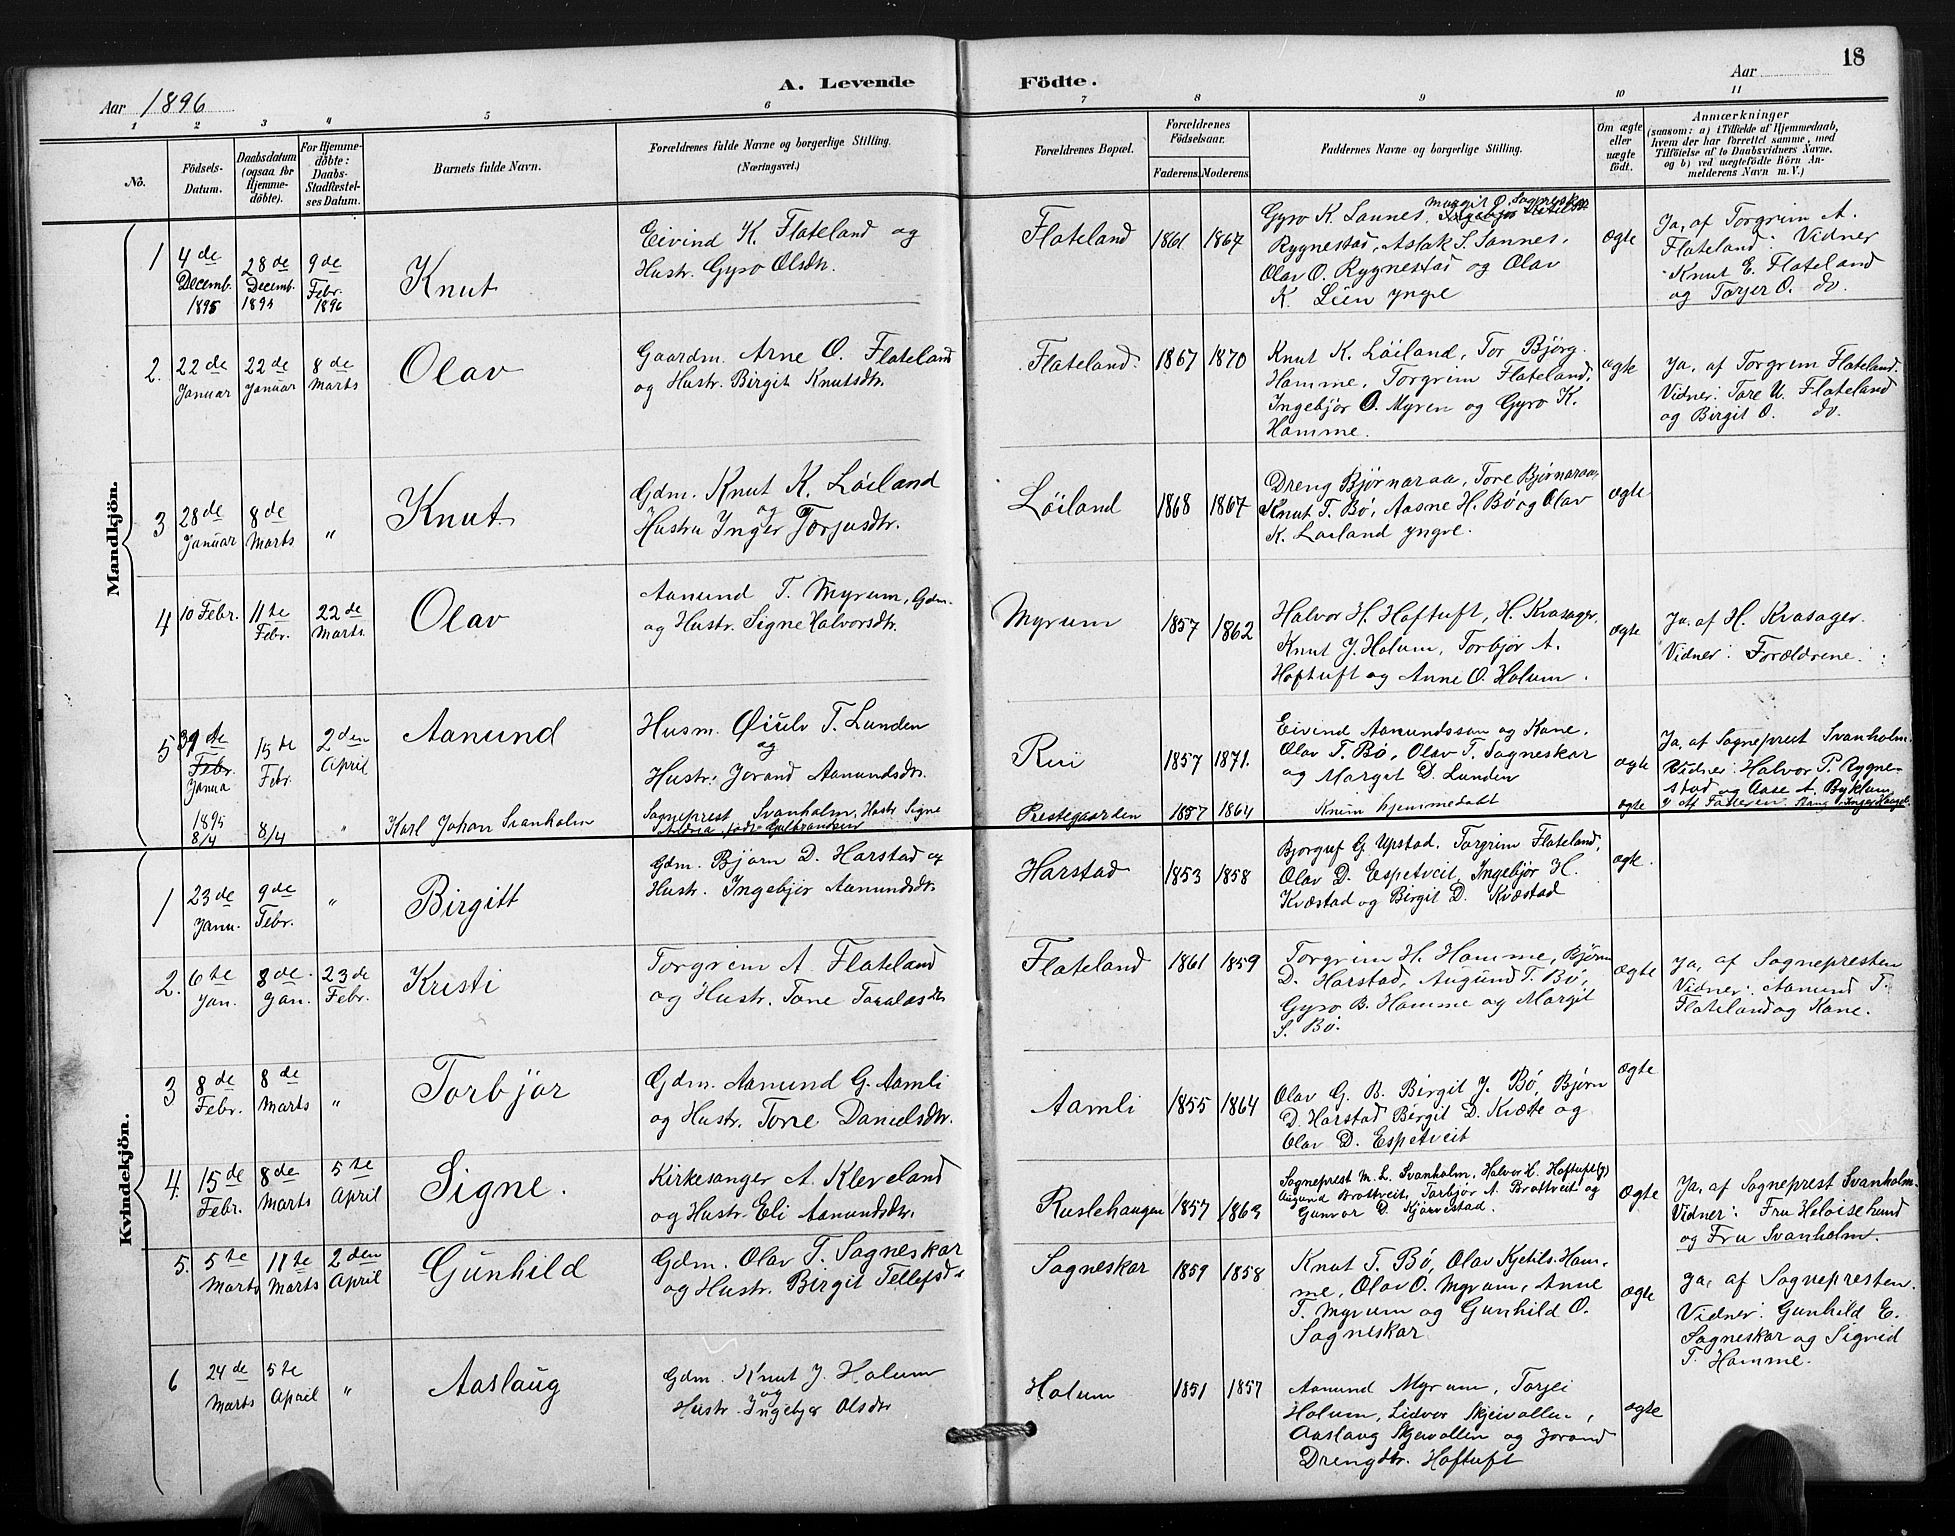 18
A. Levende Födte.
Aar 1896
Aar
1 2 3 4 5 6 7 8 9 10 11
No.
Födsels-Datum.
Daabsdatum (ogsaa for Hjemme-döbte).
For Hjemme-döbte: Daabs-Stadfæstel-ses Datum.
Barnets fulde Navn.
Forældrenes fulde Navne og borgerlige Stilling.
(Næringsvei.)
Forældrenes Bopæl.
Forældrenes Födselsaar.
Faderens. Moderens.
Faddernes Navne og borgerlige Stilling.
Om ægte eller uægte födt.
Anmærkninger
(saasom: a) i Tilfælde af Hjemmedaab,
hvem der har forrettet samme, med
Tilföielse af to Daabsvidners Navne,
og b) ved uægtefödte Börn An-
melderens Navn m. V.)
Mandkjön.
1
4de Decemb. 1895
28de Decemb. 1895
9de Febr. 1896
Knut
Eivind K. Flateland og
Hustr. Gyro Olsdtr.
Flateland
1861 1864
Margit O. Sagneskar
Gyro K. Sannes,
Rygnestad, Aslak S. Sannes,
Olav O. Rygnestad og Olav
K. Lien yngre
ægte
Ja, af Torgrim A.
Flateland. Vidner
Knut E. Flateland
og Torjer O. do.
2.
22de Januar
22de Januar
8de Marts
Olav
Gaardm. Arne O. Flateland
og Hustr. Birgit Knutsdtr.
Flateland.
1867 1870
Knut K. Löiland, Tor Bjørg.
Homme, Torgrim Flateland,
Ingebjør O. Myren og Gyro K.
Homme.
ægte
Ja, af Torgrim Flateland.
Vidner: Tore U. Flateland
og Birgit O. do.
3
28de Januar
8de Marts
"
Knut
Gdm. Knut K. Löiland
og
Hustru Inger Torjusdtr.
Löiland
1868 1867
Dreng Bjørnaraa, Tore Bjørnaraa,
Knut T. Bø, Aasne H. Bø og Olav
K. Løiland yngre.
ægte
4
10 Febr.
11te Febr.
22de Marts
Olav
Aanund T. Myrum, Gdm.
og Hustr. Signe Halvorsdtr.
Myrum
1857 1862
Halvor H. Hoftuft, H. Kvasager,
Knut J. Holum, Torbjør A.
Hoftuft og Anne O. Holum.
ægte
Ja, af H. Kvasager.
Vidner: Forældrene.
5
Febr.
Janua
15te Febr.
2den April
Aanund
Husm. Øiulv T. Lunden
og
Hustr. Jorand Aanundsdtr.
Rui
1857 1871.
Eivind Aanundsson og Kone,
Olav T. Bø, Olav T. Sagneskar
og Margit D. Lunden
ægte
Ja, af Sogneprest Svanholm.
Vidner: Halvor P. Rygne-
stad og Aase A. Byklum
1895 8/4
8/4
"
Karl Johan Svanholm
Sogneprest Svanholm, Hustr. Signe
Prestegaarden
1857 1864
Knun hjemmedøbt
ægte
Kvindekjön.
1
23de Janu.
9de Febr.
"
Birgitt
Gdm. Bjørn D. Harstad og
Hustr. Ingebjør Aanundsdtr.
Harstad
1853 1858
Bjorguf G. Upstad, Torgrim Flateland,
Olav D. Espetveit, Ingebjør H.
Kvæstad og Birgit D. Kvæstad
ægte.
2.
6te Jan.
8de Jan.
23de Febr.
Kristi
Torgrim A. Flateland
og Hustr. Tone Taralasdtr.
Flateland
1861 1859
Torgrim H. Homme, Bjørn
D. Harstad, Augund T. Bø,
Gyro B. Homme og Margit
S. Bø.
ægte
Ja, af Sognepresten
Vidner: Aanund T.
Flateland og Kone.
3
8de Febr.
8de Marts
"
Torbjør
Gdm. Aanund G. Aamli
og Hustr. Torre Danielsdtr.
Aamli
1855 1864
Olav G. B. Birgit J. Bø, Bjørn
D. Harstad Birgit D. Kvæste og
Olav D. Espetveit
ægte
4.
15de Febr.
8de Marts
5te April
Signe.
Kirkesanger A. Kleveland
og Hustr. Eli Aanundsdtr.
Ruslehaugen
1857 1863
Sogneprest M. L. Svanholm, Halvor H. Hoftuft (g)
Augund Brottveit, Torbjør A. Brottveit og
Gunvor D. Kjørvestad.
Ægte
Ja, af Sogneprest Svanholm.
Vidner: Fru Heloise Lund
og Fru Svanholm.
5.
5te Marts
11te Marts
2den April
Gunhild
Gdm. Olav T. Sagneskar
og Hustr. Birgit Tellefsd.
Sagneskar
1859 1858
Knut T. Bø, Olav Kjetils. Hom-
me, Olav O. Myrum, Anne
T. Myrum og Gunhild O.
Sagneskar
Ægte
Ja, af Sognepresten.
Vidner: Gunhild E.
Sagneskar og Sigrid
T. Homme.
6
24de Marts
5te April
"
Aaslaug
Gdm. Knut J. Holum
og
Hustr. Ingebjør Olsdtr
Holum
1851 1857
Aanund Myrum, Torjei
Holum, Lidvor Skjevollen,
Aaslaug Skjevollen og Jorand
Drengdtr. Hoftuft
ægte